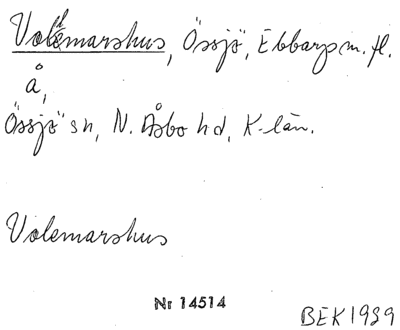 Volemarshus, Össjö, Ebbarp m. fl.
å,
Össjö sn, N. Åsbo hd, K-län.
Volemarshus
Nr 14514
BEK 1939